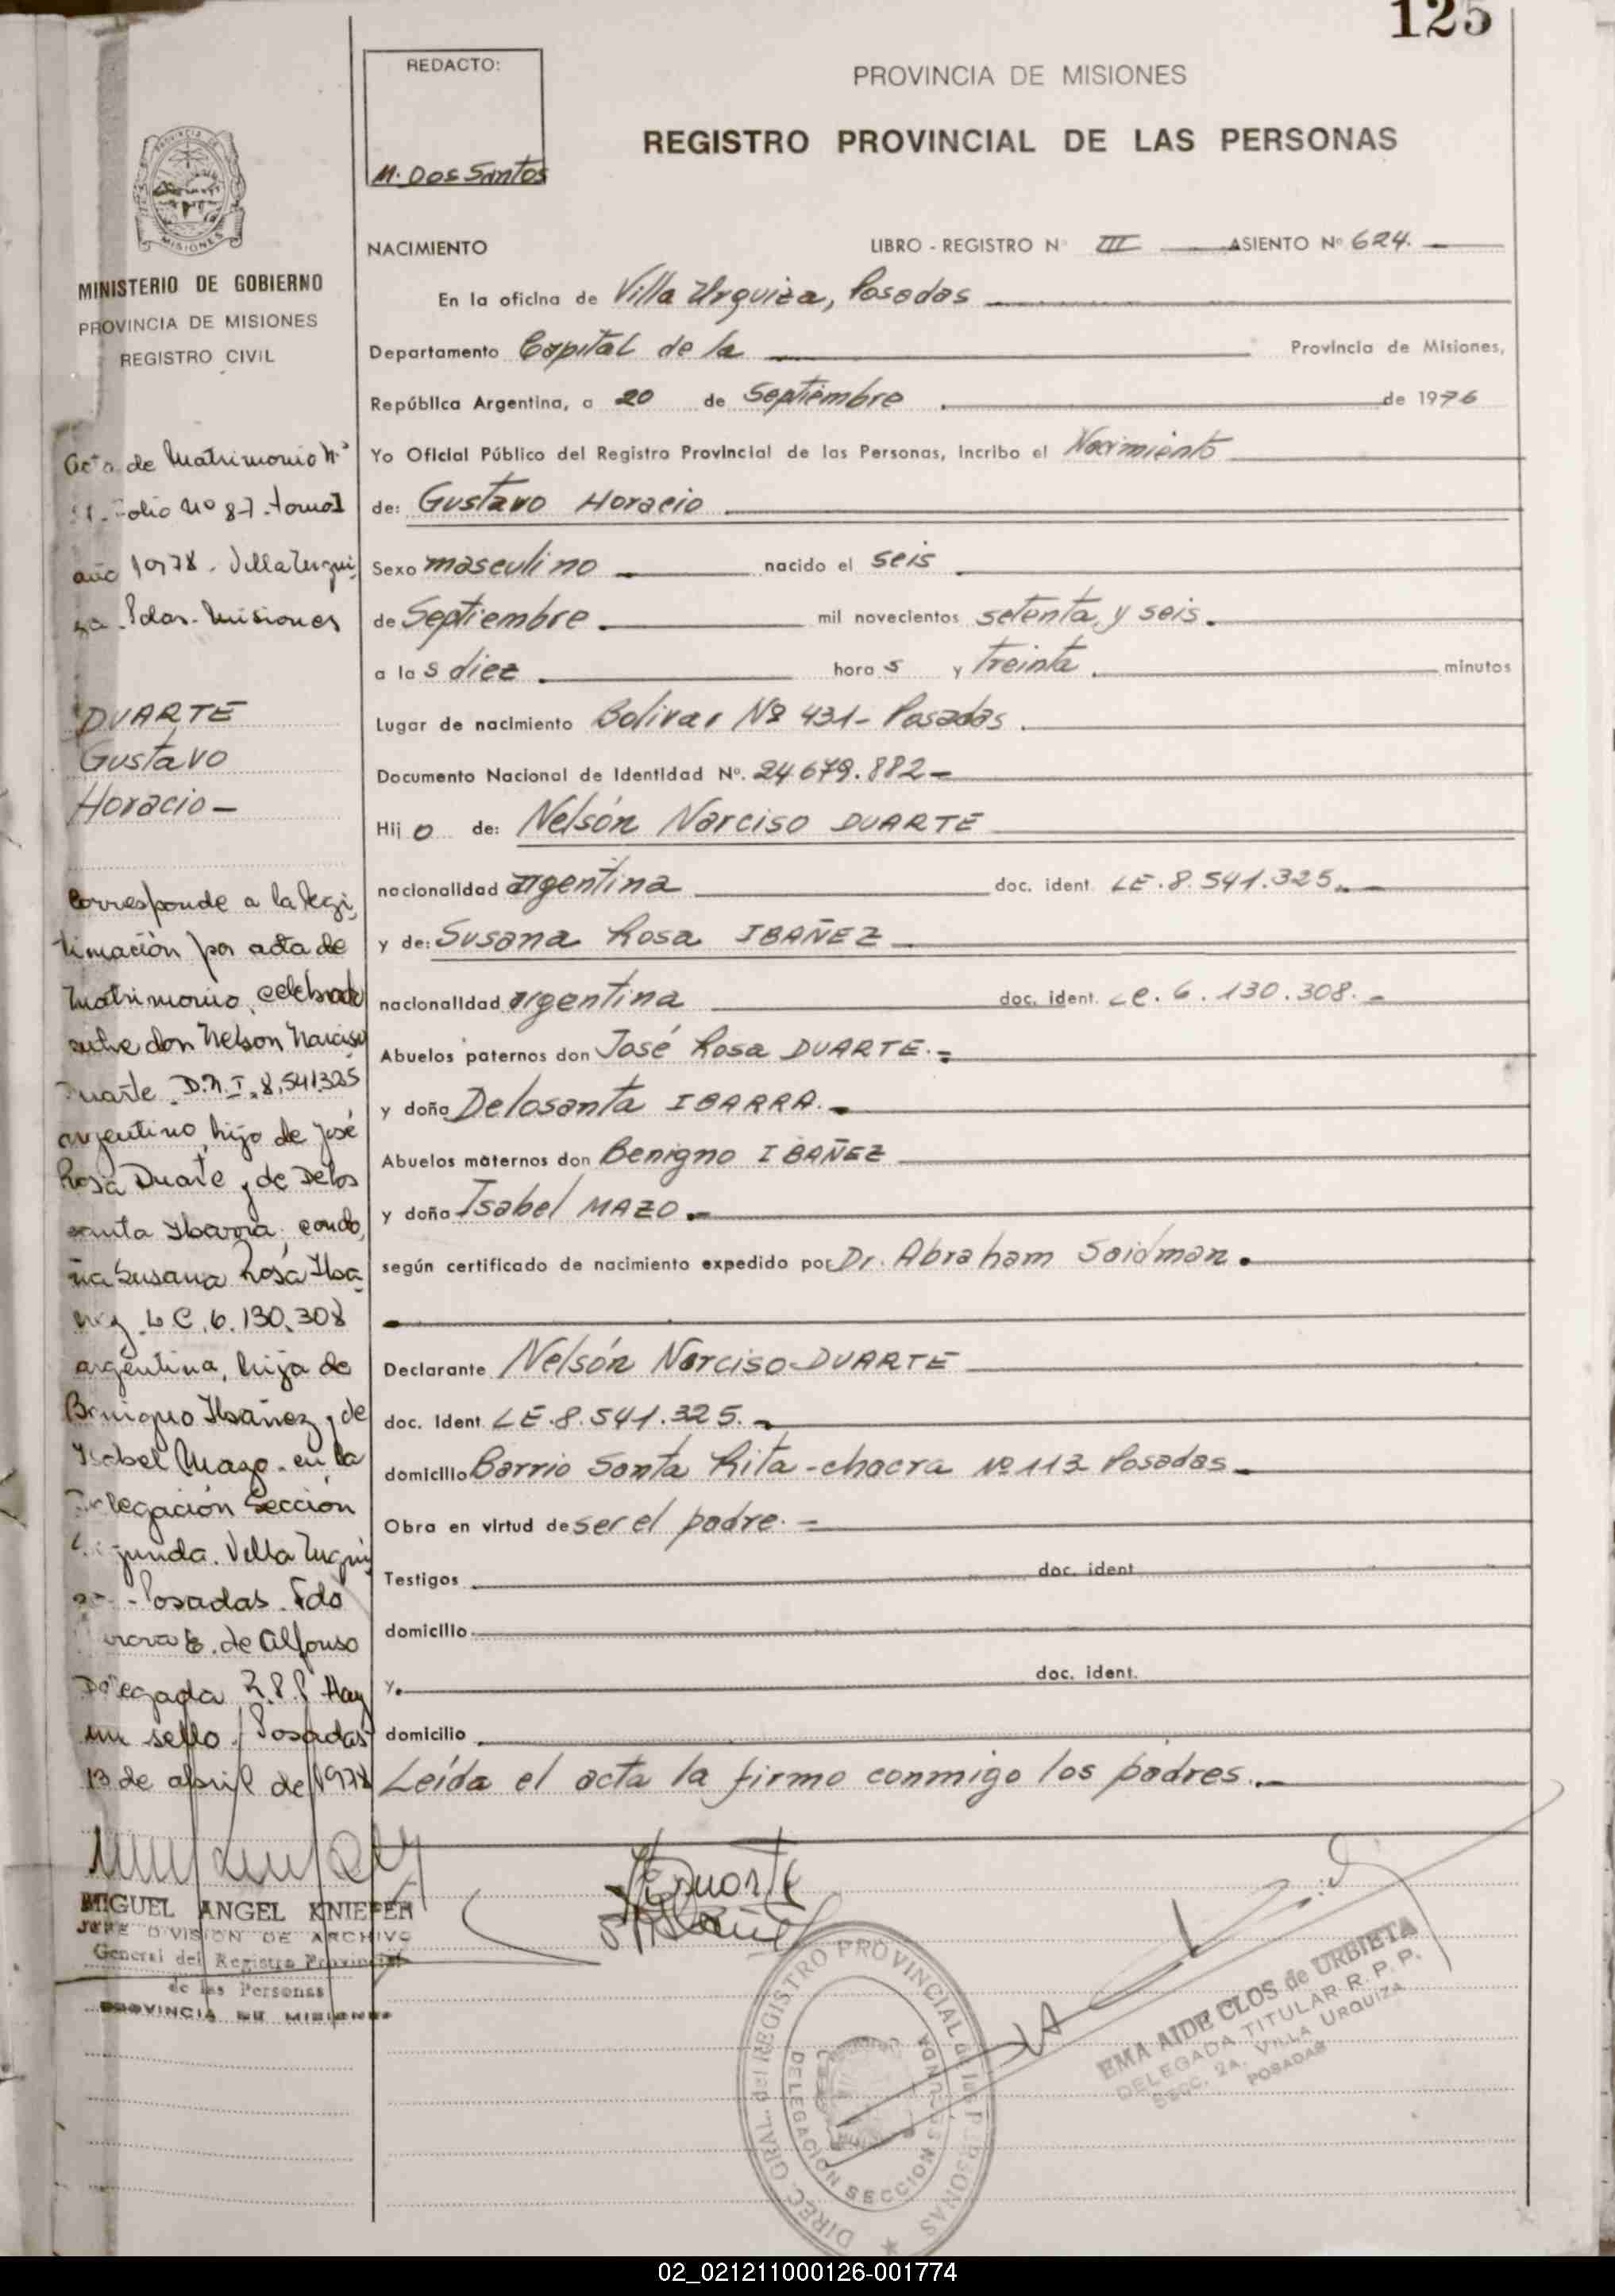 125
REDACTO:
M. Dos Santos
PROVINCIA DE MISIONES
REGISTRO PROVINCIAL DE LAS PERSONAS
NACIMIENTO
LIBRO - REGISTRO Nº III ASIENTO Nº 624.
En la oficina de Villa Urquiza, Posadas
Departamento Capital de la Provincia de Misiones,
República Argentina, a 20 de Septiembre de 1976
Yo Oficial Público del Registro Provincial de las Personas, incribo el Nacimiento
de: Gustavo Horacio
Sexo masculino nacido el seis
de Septiembre. mil novecientos setenta y seis.
a las diez. horas y treinta. minutos
Lugar de nacimiento Bolivar Nº 431- Posadas.
Documento Nacional de Identidad Nº. 24.679.882-
Hijo de: Nelsón Narciso DUARTE
nacionalidad argentina doc. ident. LE.8.541.325.-
y de: Susana Rosa IBAÑEZ
nacionalidad argentina doc. ident. LC. 6.130.308.-
Abuelos paternos don José Rosa DUARTE.=
y doña Delosanta IBARRA.-
Abuelos maternos don Benigno IBAÑEZ
y doña Isabel MAZO.-
según certificado de nacimiento expedido por Dr. Abraham Saidman.
Declarante Nelsón Narciso DUARTE
doc. Ident. LE.8.541.325.-
domicilio Barrio Santa Rita-chacra Nº 113 Posadas-
Obra en virtud de ser el padre.=
Testigos doc. ident.
domicilio
y. doc. ident.
domicilio
Leída el acta la firma conmigo los padres.-
MISIONES
MINISTERIO DE GOBIERNO
PROVINCIA DE MISIONES
REGISTRO CIVIL
Acta de Matrimonio Nº
Folio Nº 87. tomo I
año 1978. Villa Urqui
za. Pdas. Misiones
DUARTE
Gustavo
Horacio-
Corresponde a la legi
timación por acta de
Matrimonio, celebrado
entre don Nelson Narciso
Duarte. D.N.I. 8.541.325
argentino, hijo de José
Rosa Duarte y de Delos
santa Ibarra, con do
ña Susana Rosa Iba
ñez. L.C. 6.130.308
argentina, hija de
Benigno Ibañez y de
Isabel Mazo. en la
Delegación Sección
Segunda. Villa Urqui
za - Posadas. Fdo
E. de Alfonso
Delegada R.P.P. Hay
un sello. Posadas
13 de abril de 1978
MIGUEL ANGEL KNIEPER
JEFE DIVISION DE ARCHIVO
General del Registro Provincial
de las Personas
PROVINCIA DE MISIONES
Duarte
DIREC. GRAL. del REGISTRO PROVINCIAL de las PERSONAS
DELEGACION SECCION SEGUNDA
EMA AIDE CLOS de URBIETA
DELEGADA TITULAR R. P. P.
SECC. 2a. VILLA URQUIZA
POSADAS
02_021211000126-001774